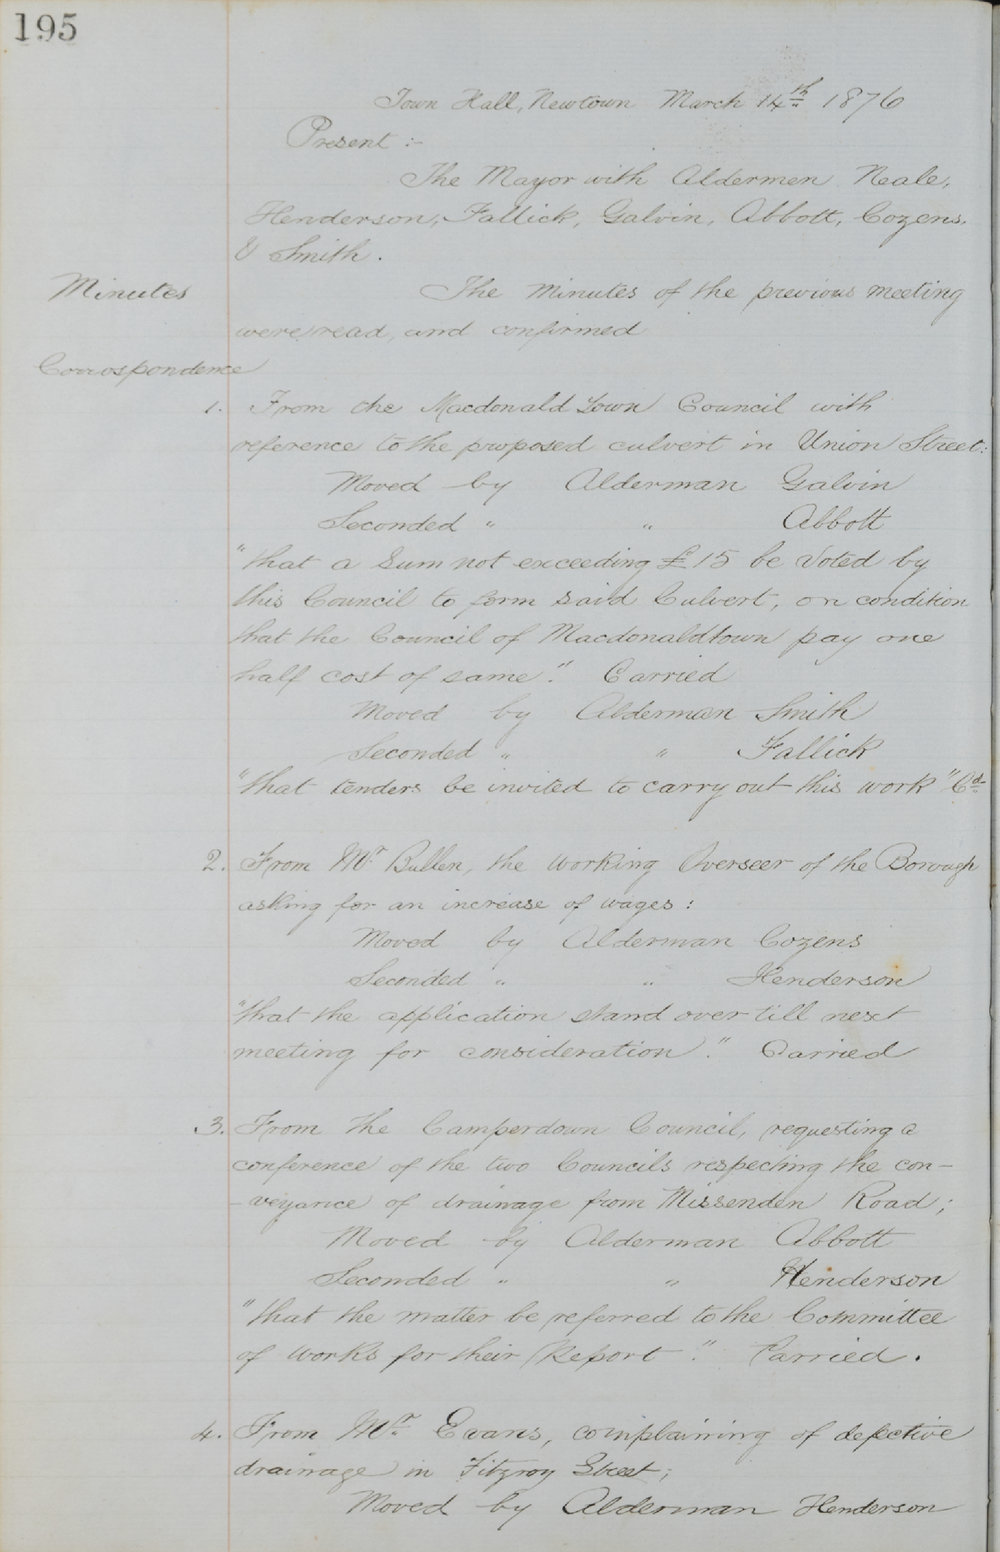 195
Town Hall, Newtown March 14th 1876
Present :-
The Mayor with Aldermen Neale,
Henderson, Fallick, Galvin, Abbott, Cozens,
& Smith.
Minutes
The Minutes of the previous meeting
were read, and confirmed
Correspondence
1. From the Macdonald Town Council with
reference to the proposed culvert in Union Street:
Moved by Alderman Galvin
Seconded " " Abbott
"that a Sum not exceeding £15 be Voted by
this Council to form said Culvert, on condition
that the Council of Macdonaldtown pay one
half cost of same." Carried
Moved by Alderman Smith
Seconded " " Fallick
"that tenders be invited to carry out this work" Cd
2. From Mr Bullen, the working Overseer of the Borough
asking for an increase of wages:
Moved by Alderman Cozens
Seconded " " Henderson
"that the application stand over till next
meeting for consideration." Carried
3. From the Camperdown Council, requesting a
conference of the two Councils respecting the con-
-veyance of drainage from Missenden Road;
Moved by Alderman Abbott
Seconded " " Henderson
"that the matter be referred to the Committee
of Works for their Report." Carried.
4. From Mr Evans, complaining of defective
drainage in Fitzroy Street;
Moved by Alderman Henderson